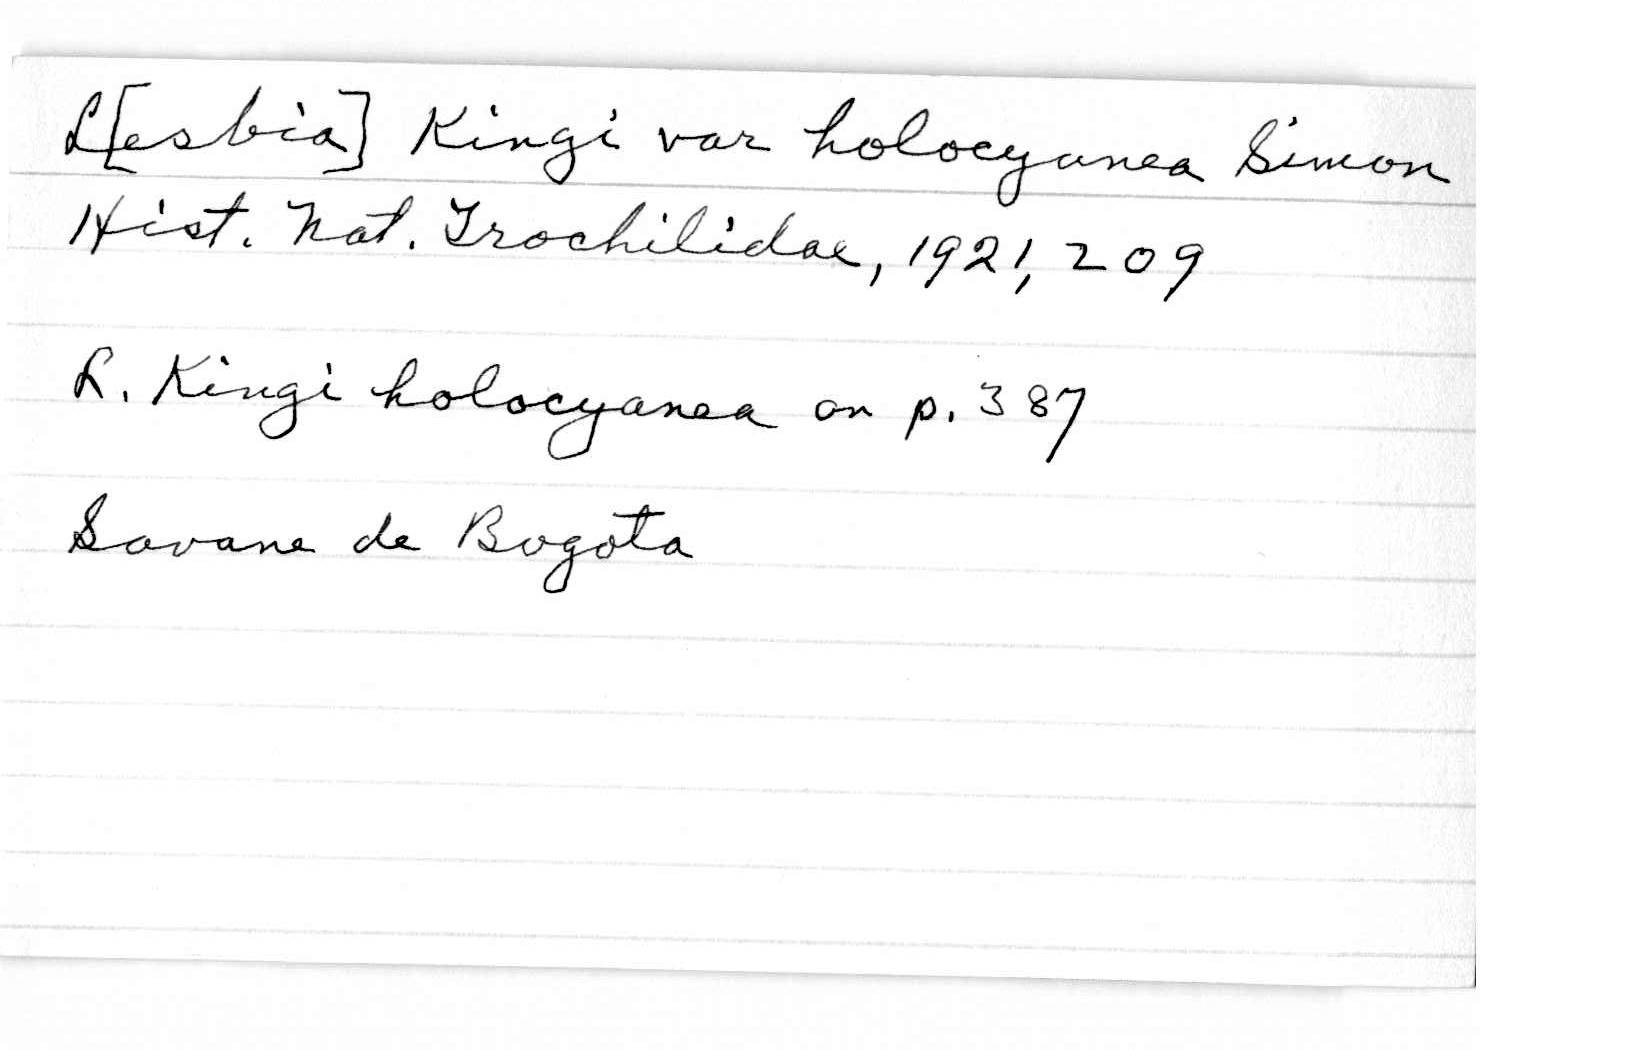 L[esbia] Kingi var holocyanea Simon
Hist. Nat. Trochilidae, 1921, 209
L. Kingi holocyanea on p. 387
Savane de Bogota